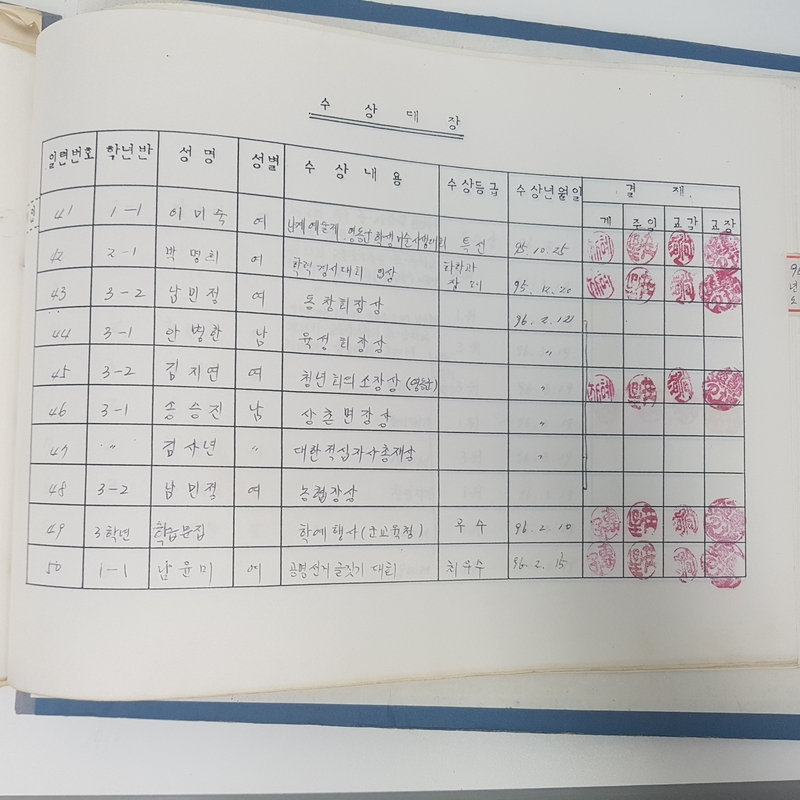 수 상 대 장
일련번호 학년반 성명 성별 수상내용 수상등급 수상년월일 결재
계 주임 교감 교장
41 1-1 이미숙 여 난계예술제. 영동군학생미술사생대회 특선 95.10.25
42 2-1 박명희 여 학력경시대회
43 3-2 남민정 여 동창회장상 96.2.12
44 3-1 안병찬 남 육성회장상 〃
45 3-2 김지연 여 청년회의소장상(영동군) 〃
46 3-1 송승진 남 상촌면장상 〃
47 〃 〃 대한적십자사총재상 〃
48 3-2 남민정 여 농협장상
49 3학년 학급문집 학예행사(군교육청) 우수 96.2.10
50 1-1 남윤미 여 공명선거글짓기대회 최우수 96.2.15